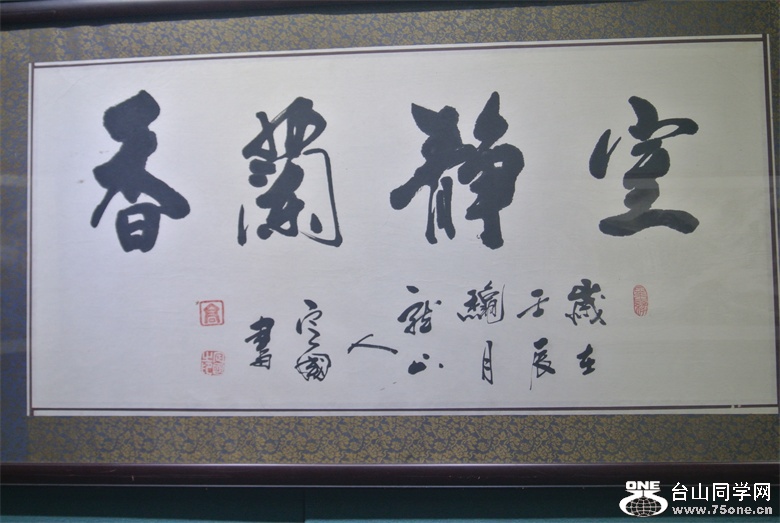 室靜蘭香
歲在
壬辰
月
人
定國
書
ONE
台山同学网
www.75one.cn